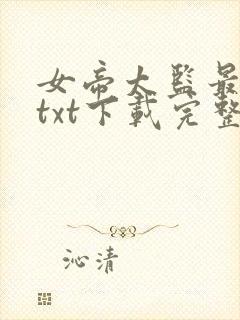 女帝大監最
txt下載完整
沁清